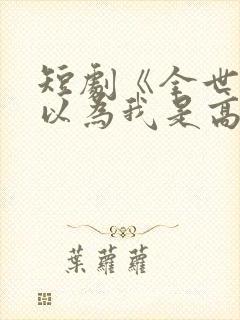 短劇《全世
以為我是高
葉蘿蘿